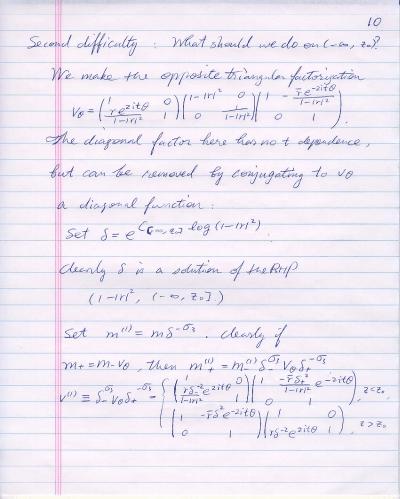 10
Second difficulty : What should we do on (-∞, z₀)?
We make the opposite triangular factorization
v_θ = ( 1 0 ; r e^{2itθ}/(1-|r|²) 1 ) ( 1-|r|² 0 ; 0 1/(1-|r|²) ) ( 1 -r̄ e^{-2itθ}/(1-|r|²) ; 0 1 ).
The diagonal factor here has no t dependence,
but can be removed by conjugating to v_θ
a diagonal function :
Set δ = e^{C_{(-∞, z₀]} log(1-|r|²)}.
Clearly δ is a solution of the RHP
(1-|r|², (-∞, z₀].)
Set m^{(1)} = m δ^{-σ₃}. Clearly if
m₊ = m₋ v_θ, then m₊^{(1)} = m₋^{(1)} δ₋^{σ₃} v_θ δ₊^{-σ₃}
v^{(1)} ≡ δ₋^{σ₃} v_θ δ₊^{-σ₃} = { ( 1 0 ; r δ₋^{-2} e^{2itθ}/(1-|r|²) 1 ) ( 1 -r̄ δ₊²/(1-|r|²) e^{-2itθ} ; 0 1 ), z<z₀
( 1 -r̄ δ² e^{-2itθ} ; 0 1 ) ( 1 0 ; r δ^{-2} e^{2itθ} 1 ), z>z₀